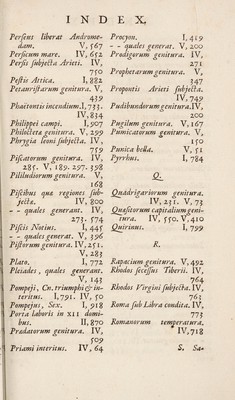 INDEX.
Perseus liberat Androme-
dam. V, 567
Persicum mare. IV, 652
Persis subjecta Arieti. IV,
750
Pestis Attica. I, 882
Petauristarum genitura. V,
439
Phaëtontis incendium. I, 733.
IV, 834
Philippei campi. I, 907
Philoctetæ genitura. V, 299
Phrygia leoni subjecta. IV,
759
Piscatorum genitura. IV,
285. V, 189. 297. 398
Pililudorum genitura. V,
168
Piscibus quæ regiones sub-
jectæ. IV, 800
-- quales generant. IV,
273. 574
Piscis Notius. I, 445
-- quales generat. V, 396
Pistorum genitura. IV, 251.
V, 283
Plato. I, 772
Pleiades, quales generant.
V, 143
Pompeji, Cn. triumphi & in-
teritus. I, 791. IV, 50
Pompejus, Sex. I, 918
Porta laboris in XII domi-
bus. II, 870
Prædatorum genitura. IV,
509
Priami interitus. IV, 64
Procyon. I, 419
-- quales generat. V, 200
Prodigorum genitura. IV,
271
Prophetarum genitura. V,
347
Propontis Arieti subjecta.
IV, 749
Pudibundorum genitura. IV,
200
Pugilum genitura. V, 167
Pumicatorum genitura. V,
150
Punica bella. V, 51
Pyrrhus. I, 784
Q.
Quadrigariorum genitura.
IV, 231. V, 73
Quæsitorum capitalium geni-
tura. IV, 550. V, 410
Quirinus. I, 799
R.
Rapacium genitura. V, 492
Rhodos secessus Tiberii. IV,
764
Rhodos Virgini subjecta. IV,
763
Roma sub Libra condita. IV,
773
Romanorum temperatura.
IV, 718
S. Sa-